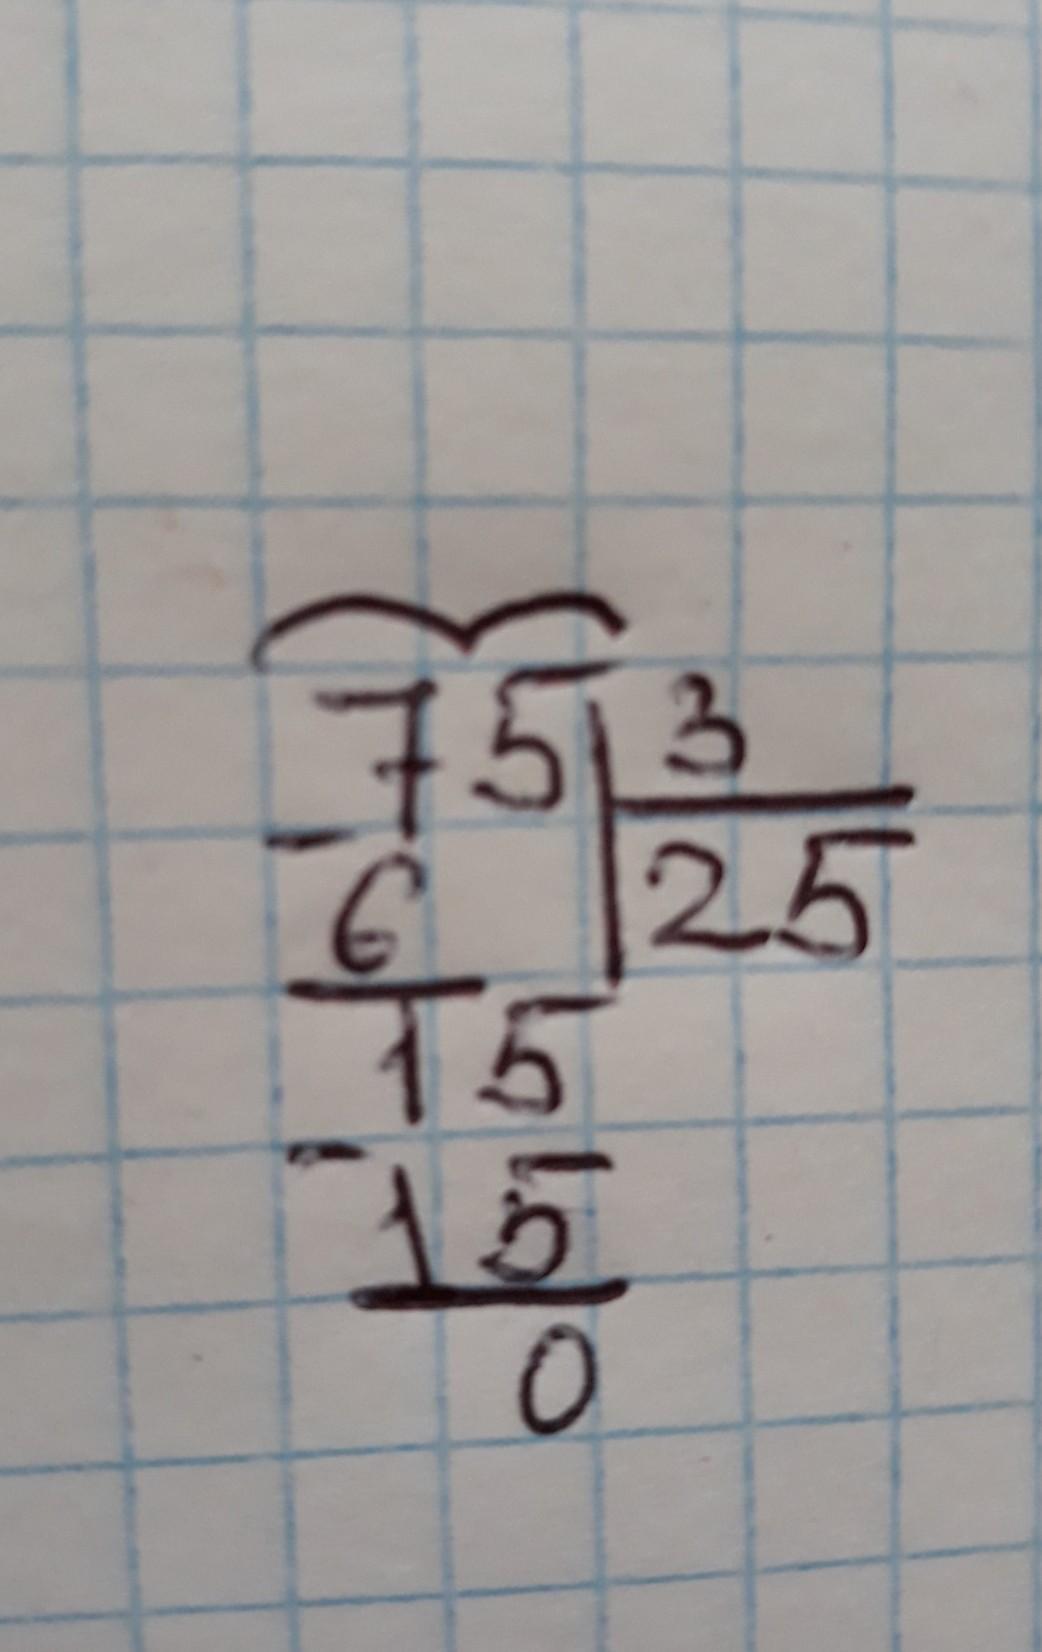 75 3
- 25
6
15
-
15
0